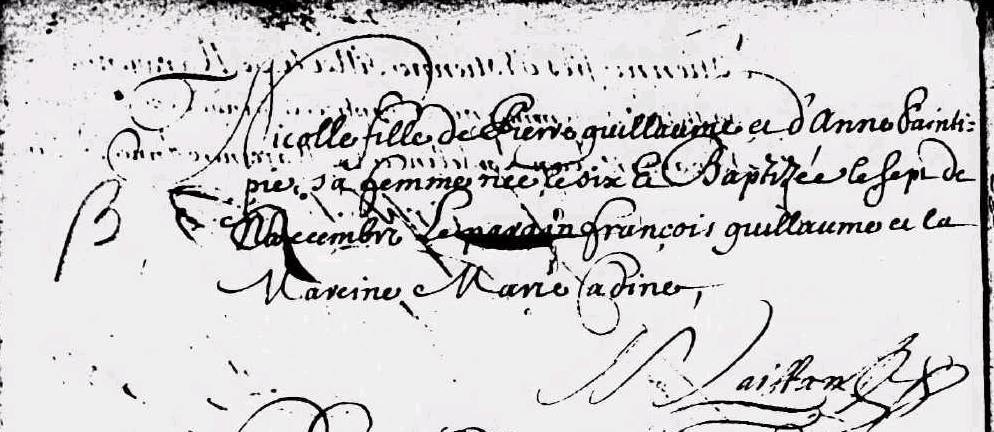 Nicolle fille de Pierre guillaume et d'Anne Sainti=
pie, sa femme née le six et Baptizée le sept de
decembre Le parain françois guillaume et la
Mareine Marie adine,